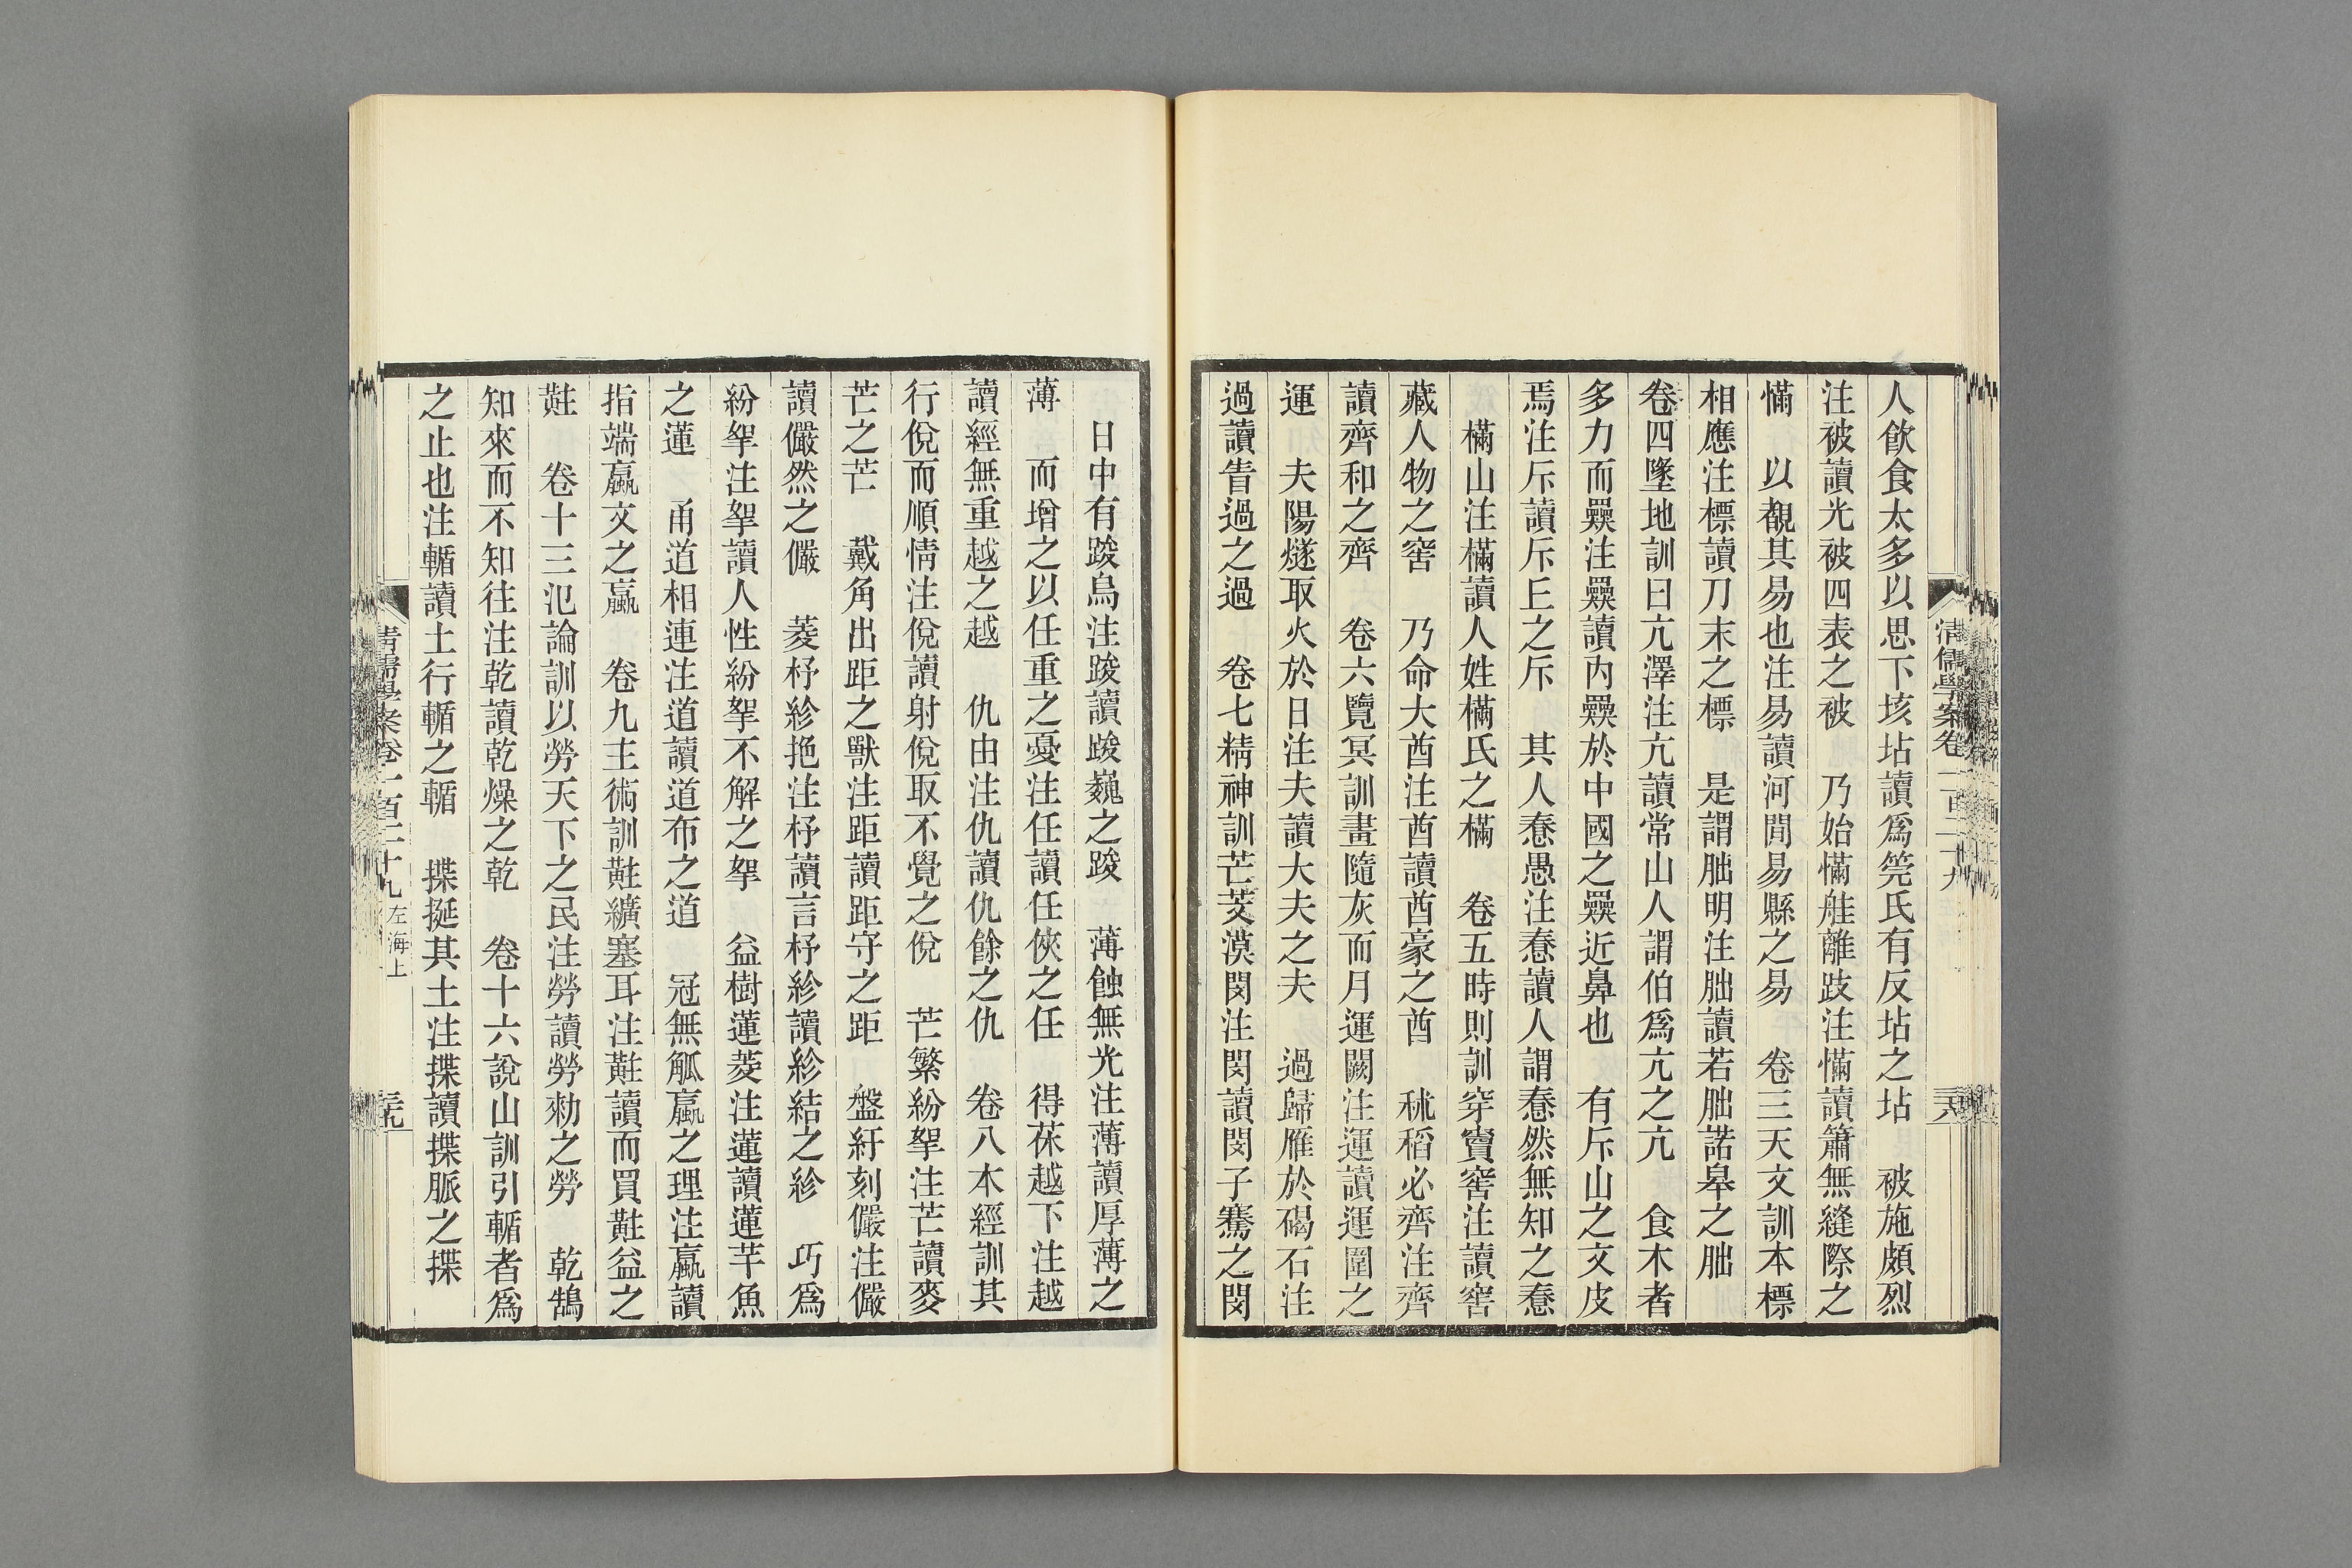 人飮食太多以思下垓坫讀爲筦氏有反坫之坫　被施頗烈
注被讀光被四表之被　乃始慲觟離跂注慲讀簫無縫際之
慲　以覩其易也注易讀河閒易縣之易　卷三天文訓本標
相應注標讀刀末之標　是謂朏明注朏讀若朏諾皋之朏
卷四墜地訓曰亢澤注亢讀常山人謂伯爲亢之亢　食木者
多力而㚟注㚟讀內㚟於中國之㚟近鼻也　有斥山之文皮
焉注斥讀斥丘之斥　其人惷愚注惷讀人謂惷然無知之惷
樠山注樠讀人姓樠氏之樠　卷五時則訓穿竇窖注讀窖
藏人物之窖　乃命大酋注酋讀酋豪之酋　秫稻必齊注齊
讀齊和之齊　卷六覽冥訓畫隨灰而月運闕注運讀運圍之
運　夫陽燧取火於日注夫讀大夫之夫　過歸雁於碣石注
過讀責過之過　卷七精神訓芒芠漠閔注閔讀閔子騫之閔
清儒學案卷一百二十九
三八
日中有踆烏注踆讀踆巍之踆　薄蝕無光注薄讀厚薄之
薄　而增之以任重之憂注任讀任俠之任　得茠越下注越
讀經無重越之越　仇由注仇讀仇餘之仇　卷八本經訓其
行侻而順情注侻讀射侻取不覺之侻　芒繁紛挐注芒讀麥
芒之芒　戴角出距之獸注距讀距守之距　盤紆刻儼注儼
讀儼然之儼　菱杼紾抱注杼讀言杼紾讀紾結之紾　巧爲
紛挐注挐讀人性紛挐不解之挐　益樹蓮菱注蓮讀蓮芊魚
之蓮　甬道相連注道讀道布之道　冠無觚蠃之理注蠃讀
指端蠃文之蠃　卷九主術訓黈纊塞耳注黈讀而買黈益之
黈　卷十三氾論訓以勞天下之民注勞讀勞勑之勞　乾鵠
知來而不知往注乾讀乾燥之乾　卷十六說山訓引輴者爲
之止也注輴讀土行輴之輴　揲挻其土注揲讀揲脈之揲
清儒學案卷一百二十九　左海上
三九